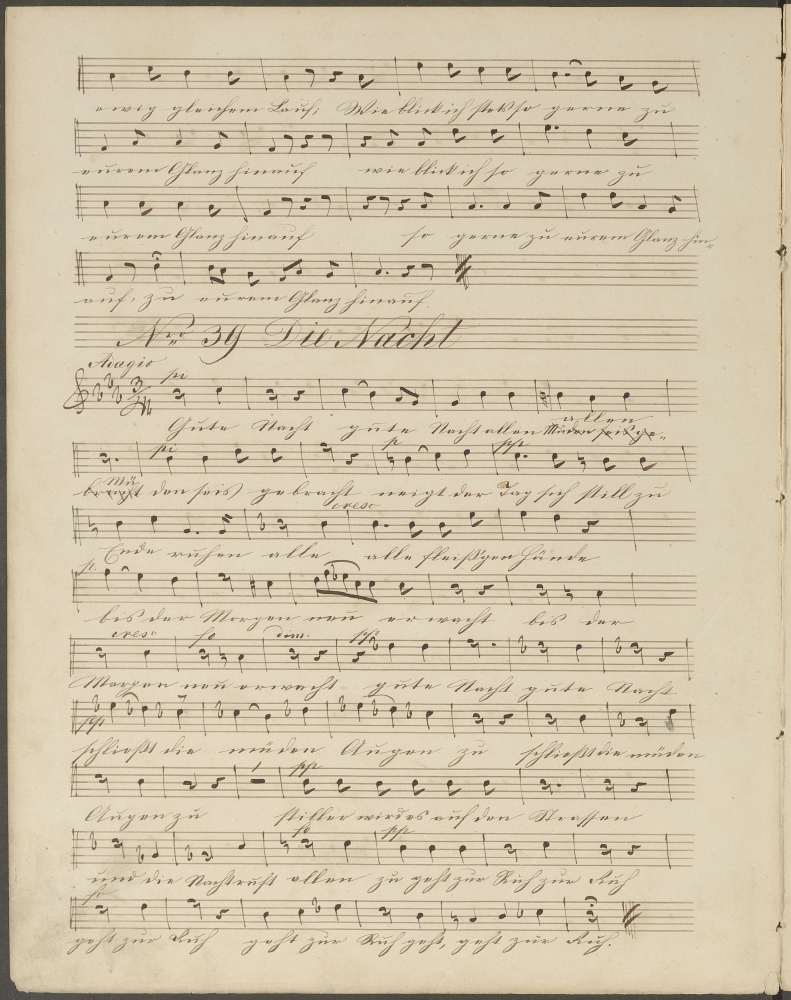 ewig gleichem Lauf; Wie blick ich stets so gerne zu
eurem Glanz hinauf wie blick ich so gerne zu
eurem Glanz hinauf so gerne zu eurem Glanz hin-
auf, zu eurem Glanz hinauf.
Nro 39 Die Nacht
Adagio
Gute Nacht gute Nacht allen
Mü
den seis gebracht neigt der Tag sich still zu
cresc
Ende ruhen alle alle fleiß'gen Hände
p.
bis der Morgen neu erwacht bis der
cresc fo dim. pp
Morgen neu erwacht gute Nacht gute Nacht
pp
schließt die müden Augen zu schließt die müden
pp
Augen zu stiller wird es auf den Strassen
fo pp
und die Nacht ruft allen zu geht zur Ruh zur Ruh
geht zur Ruh geht zur Ruh geht, geht zur Ruh.